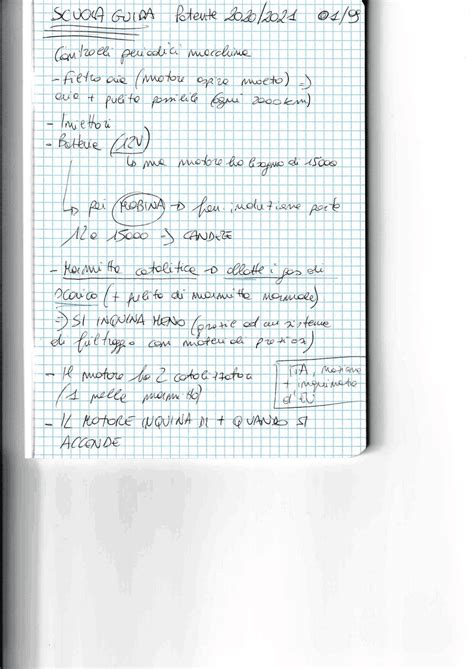 SCUOLA GUIDA Patente 2020/2021 01/9
Controlli periodici macchina
- Filtro aria (motore aspira molto) =>
aria + pulita possibile (ogni 2000km)
- Iniettori
- Batteria (12V)
↳ ma motore ha bisogno di 15000
↳ poi BOBINA → per induzione porta
12 a 15000 => CANDELE
- Marmitta catalitica →  i gas di
scarico (+ pulito di marmitta normale)
=> SI INQUINA MENO (grazie ad un sistema
di filtraggio con materiali preziosi)
- Il motore ha 2 catalizzatori
(1 nella marmitta)
- IL MOTORE INQUINA DI + QUANDO SI
ACCENDE
+ inquinato